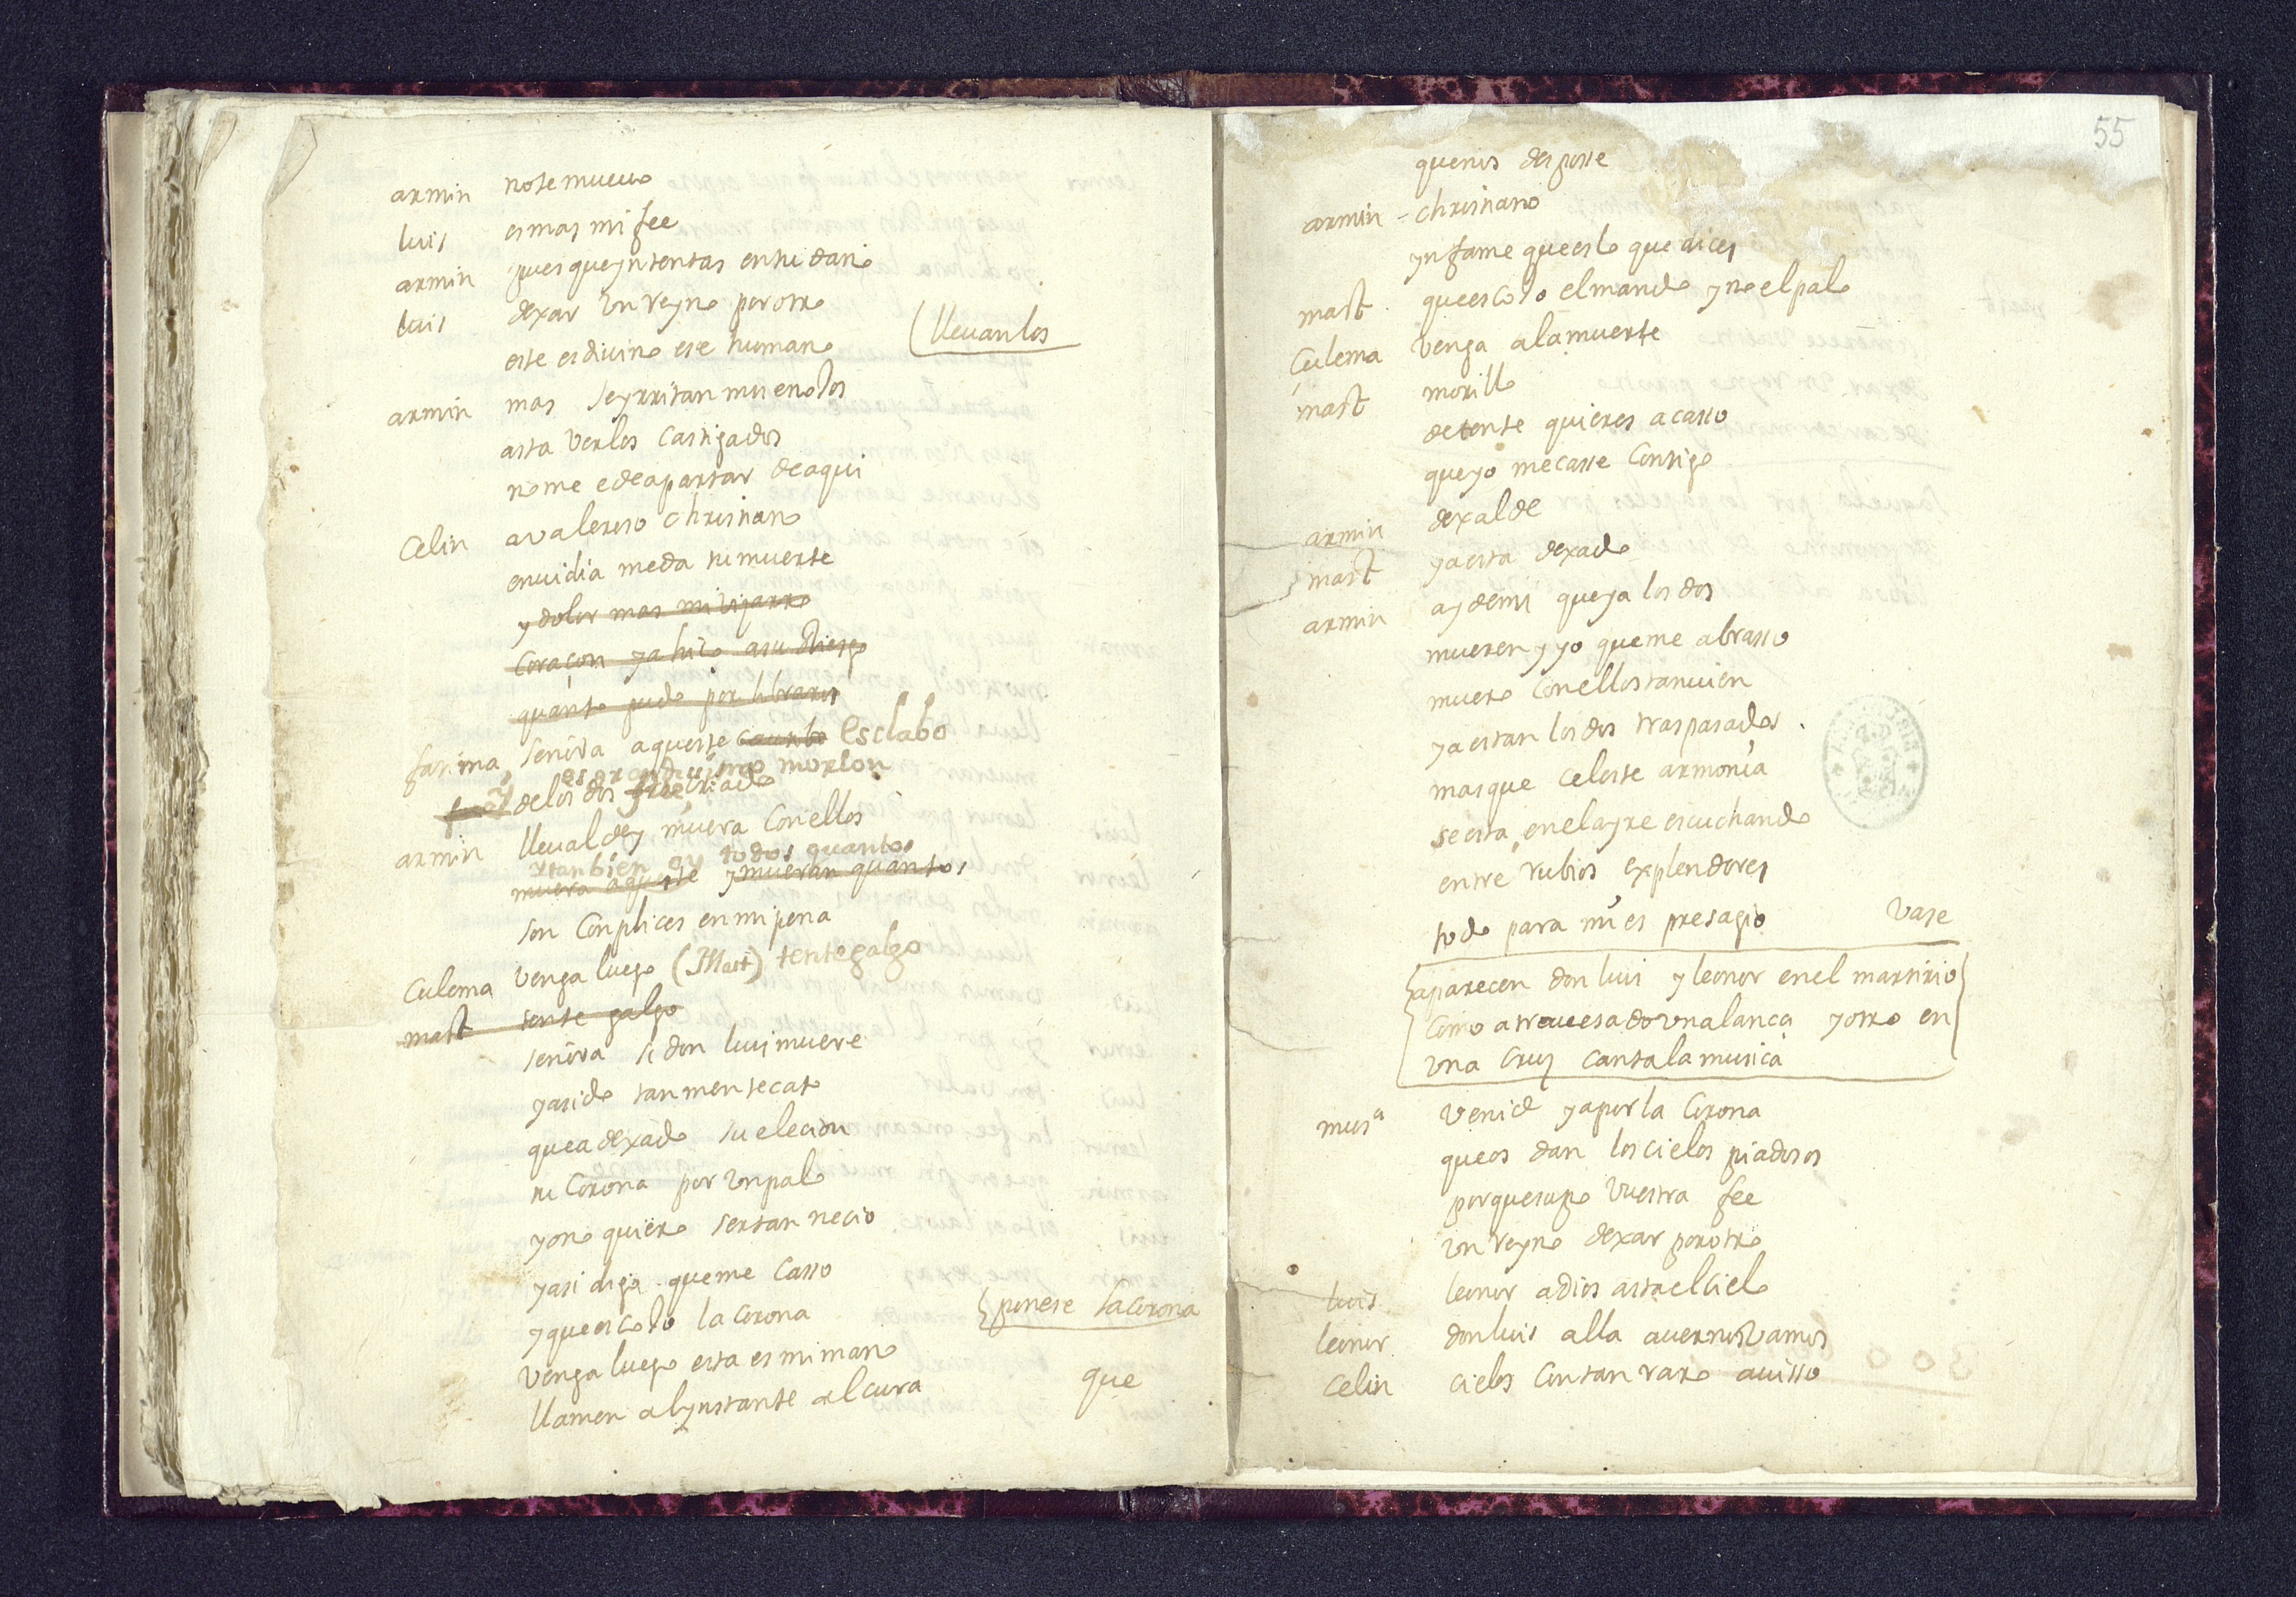 armin note mueuo
luis es mas mi fee
armin pues que yntentas en tu daño
luis dexar vn reyno por otro
este es diuino ese humano (lleuanlos
armin mas se yrritan mis enojos
asta verlos castigados
no me e de apartar de aqui
Celin a valeroso christiano
enuidia me da tu muerte
y dolor mas mi vizarro
coraçon ya hiço a su Riesgo
quanto pudo por libraros
fatima señora aqueste esclabo
es grandisimo morlon
y de los dos criado
armin lleualde y muera con ellos
y tanbien oy todos quantos
muera aqueste y mueran quantos
son conplices en mi pena
Culema venga luego (Mart) tente galgo
mart tente galgo
señora si don luis muere
y a sido tan mentecato
que a dexado su elecion
tu corona por vn palo
yo no quiero ser tan necio
y asi digo que me casso
y que escojo la corona {ponese la corona
venga luego esta es mi mano
llamen al ynstante al cura
que
55
quenos despose
armin - christiano
ynfame que es lo que dices
mart que escojo el mando y no el palo
Culema venga a la muerte
mart morillo
detente quieres acasso
que yo me casse contigo
armin dexalde
mart ya esta dexado
armin ay de mi que ya los dos
mueren y yo que me abrasso
muero con ellos tanuien
ya estan los dos traspasados
mas que celeste armonia
se esta en el ayre escuchando
entre rubios explendores
todo para mi es presagio vase
{aparecen don luis y leonor en el martirio
como atrauesado vna lança y otro en
vna cruz canta la musica}
mus.ª venid ya por la corona
que os dan los cielos piadosos
porque supo vuestra fee
vn reyno dexar por otro
luis leonor adios asta el cielo
leonor don luis alla a vernos vamos
Celin cielos con tan raro auisso